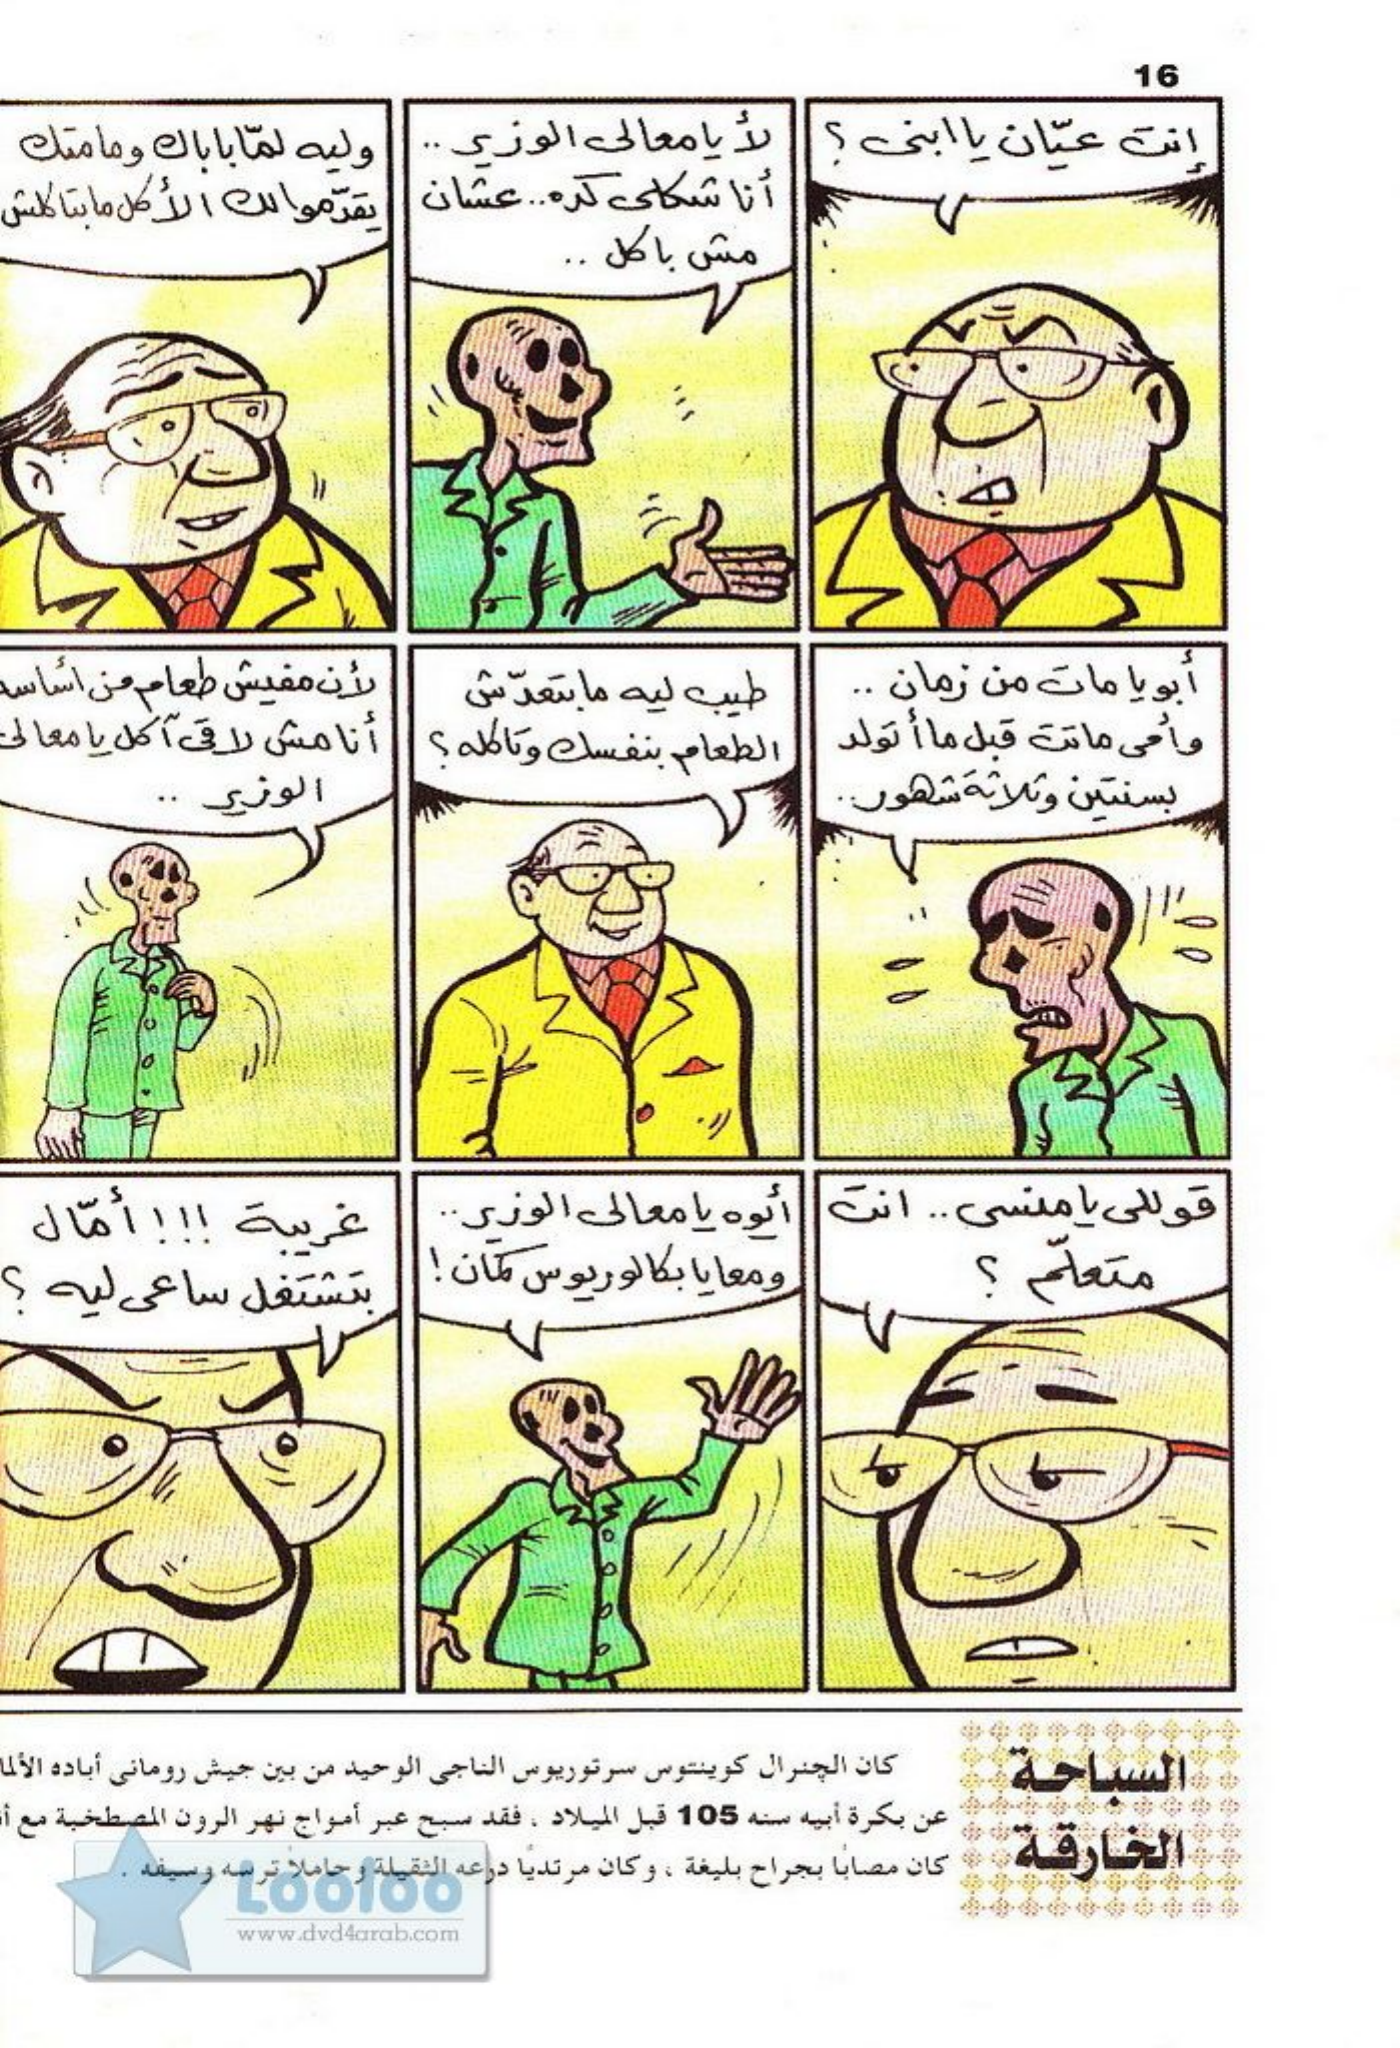 16
إنت عيّان يا ابنى ؟
لأ يا معالى الوزير ..
أنا شكلى كده .. عشان
مش باكل ..
وليه لمّا باباك ومامتك
يقدّموا لك الأكل ما بتاكلش
أبويا مات من زمان ..
وأمى ماتت قبل ما أتولد
بسنتين وثلاثة شهور ..
طيب ليه ما بتعدّش
الطعام بنفسك وتاكله ؟
لأن مفيش طعام من أساسه
أنا مش لاقى آكل يا معالى
الوزير ..
قوللى يا منسى .. انت
متعلّم ؟
أيوه يا معالى الوزير ..
ومعايا بكالوريوس كمان !
غريبة !!! أمّال
بتشتغل ساعى ليه ؟
السباحة
الخارقة
كان الچنرال كوينتوس سرتوريوس الناجى الوحيد من بين جيش رومانى أباده
عن بكرة أبيه سنه 105 قبل الميلاد ، فقد سبح عبر أمواج نهر الرون المصطخبة مع
كان مصابًا بجراح بليغة ، وكان مرتديًا درعه الثقيلة وحاملاً ترسه وسيفه .
Looloo
www.dvd4arab.com